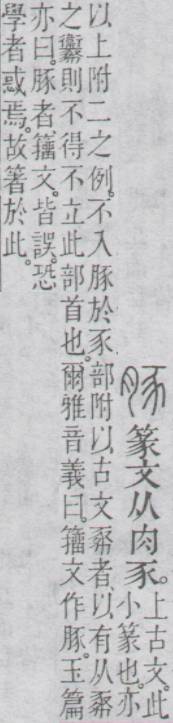 豚篆文从肉豕。上古文。此
小篆也。亦
以上附二之例。不入豚於豕部附以古文者。以有从
之則不得不立此部首也。爾雅音義曰。籒文作豚。玉篇
亦曰。豚者籒文。皆誤。恐
學者惑焉。故箸於此。